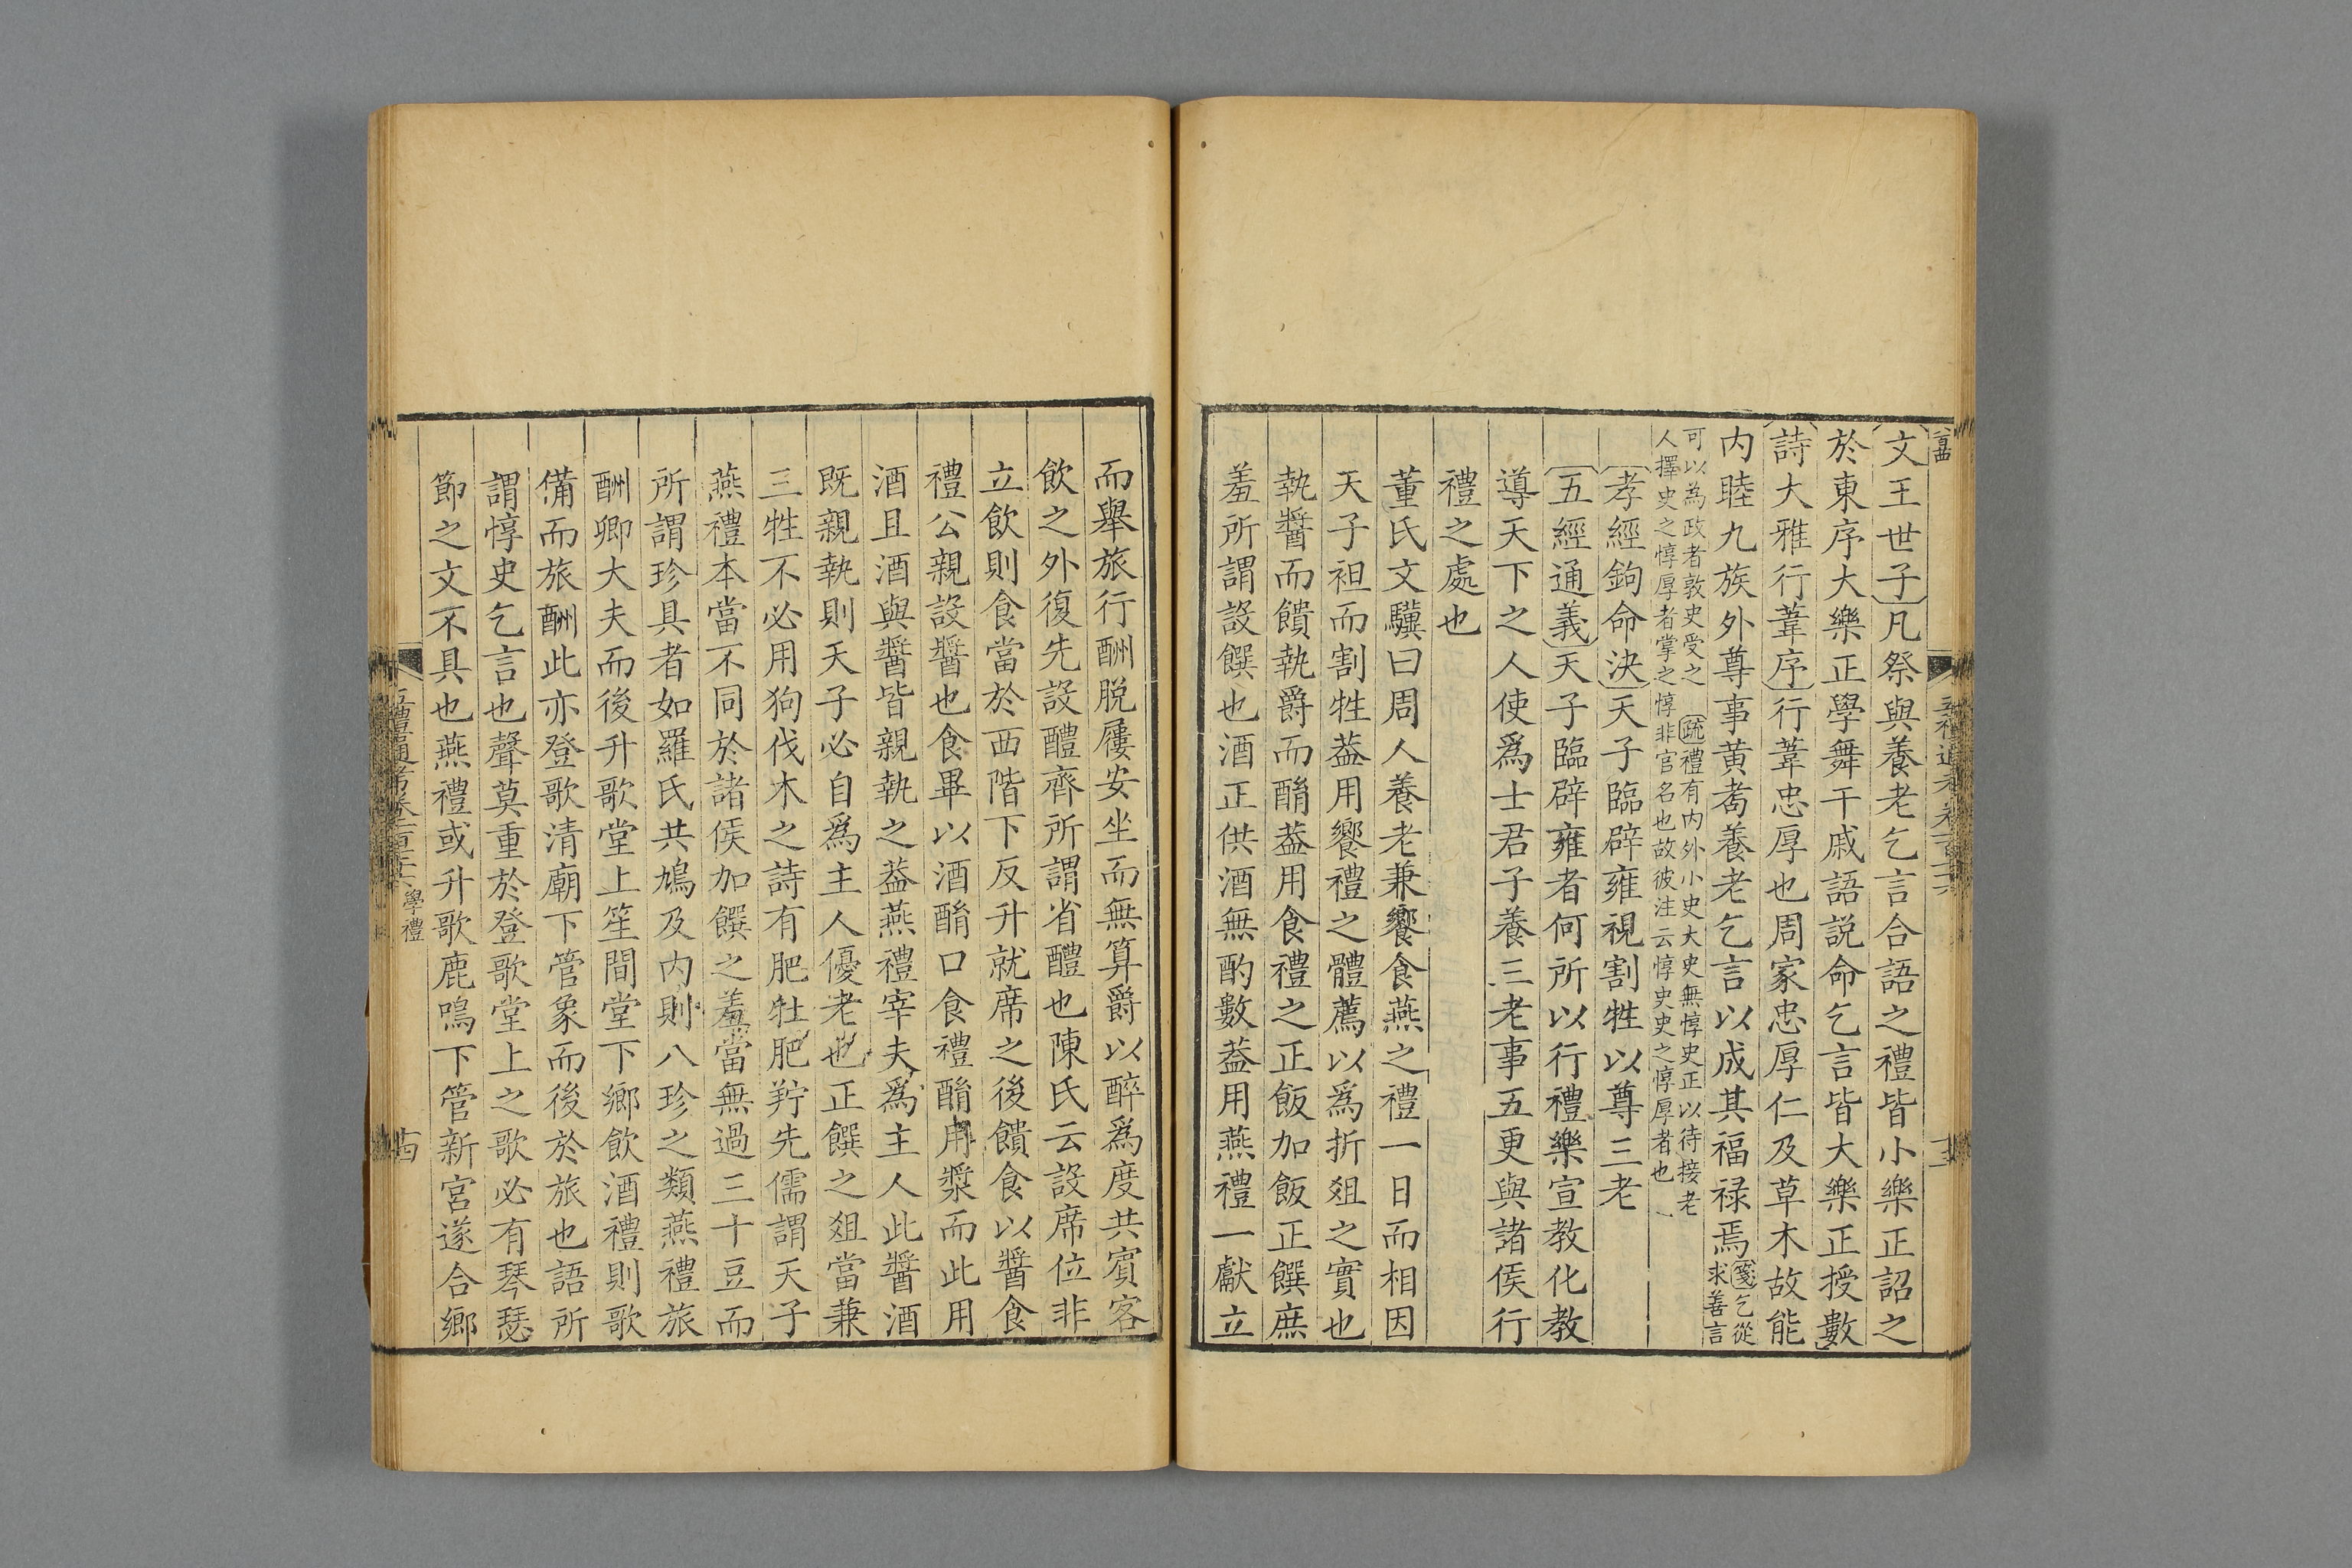 文王世子凡祭與養老乞言合語之禮皆小樂正詔之
於東序大樂正學舞干戚語説命乞言皆大樂正授數
詩大雅行葦序行葦忠厚也周家忠厚仁及草木故能
内睦九族外尊事黄耇養老乞言以成其福禄焉箋乞從
求善言
可以為政者敦史受之　疏禮有内外小史大史無惇史正以待接老
人擇史之惇厚者掌之惇非官名也故彼注云惇史史之惇厚者也
孝經鉤命決天子臨辟雍視割牲以尊三老
五經通義天子臨辟雍者何所以行禮樂宣教化教
導天下之人使爲士君子養三老事五更與諸侯行
禮之處也
董氏文驥曰周人養老兼饗食燕之禮一日而相因
天子袒而割牲葢用饗禮之體薦以爲折俎之實也
執醬而饋執爵而酳葢用食禮之正飯加飯正饌庶
羞所謂設饌也酒正供酒無酌數葢用燕禮一獻立
而舉旅行酬脱屨安坐而無算爵以醉爲度共賓客
飲之外復先設醴齊所謂省醴也陳氏云設席位非
立飲則食當於西階下反升就席之後饋食以醬食
禮公親設醬也食畢以酒酳口食禮酳用漿而此用
酒且酒與醬皆親執之葢燕禮宰夫爲主人此醬酒
既親執則天子必自爲主人優老也正饌之俎當兼
三牲不必用狗伐木之詩有肥牡肥羜先儒謂天子
燕禮本當不同於諸侯加饌之羞當無過三十豆而
所謂珍具者如羅氏共鳩及内則八珍之類燕禮旅
酬卿大夫而後升歌堂上笙間堂下鄉飲酒禮則歌
備而旅酬此亦登歌清廟下管象而後於旅也語所
謂惇史乞言也聲莫重於登歌堂上之歌必有琴瑟
節之文不具也燕禮或升歌鹿鳴下管新宮遂合鄉
學禮